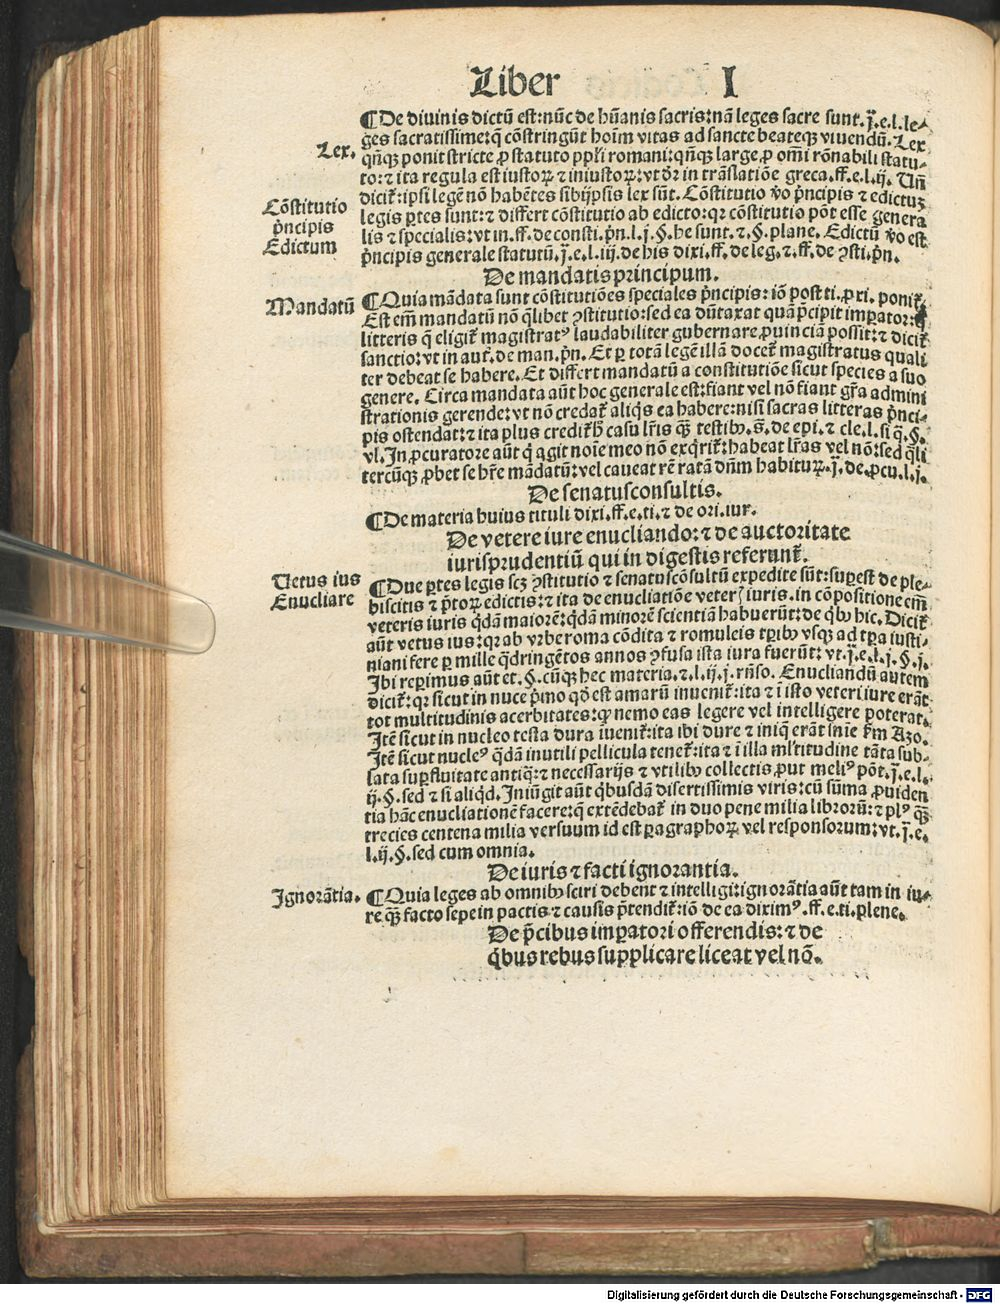 Liber I
¶De diuinis dictū est: nūc de hūanis sacris: nā leges sacre sunt. j̄. e. l. le-
ges sacratissime: q̄ cōstringūt hoīm vitas ad sancte beateqꝫ viuendū. Lex
Lex.
qn̄qꝫ ponit stricte ꝓ statuto pp̄li romani: qn̄qꝫ large, ꝓ om̄i rōnabili statu-
to: ⁊ ita regula est iustoꝝ ⁊ iniustoꝝ: vt dr̄ in trāslatiōe greca. ff. e. l. ij. Un̄
dicit᷑: ipsi legē nō habētes sibijpsis lex sūt. Cōstitutio v̄o p̄ncipis ⁊ edictuꝫ
Cōstitutio
p̄ncipis
Edictum
legis ꝑtes sunt: ⁊ differt cōstitutio ab edicto: qꝛ cōstitutio pōt esse genera
lis ⁊ specialis: vt in. ff. de consti. p̄n. l. j. §. he sunt. ⁊. §. plane. Edictū v̄o est
p̄ncipis generale statutū. j̄. e. l. iij. de his dixi. ff. de leg. ⁊. ff. de ꝯsti. p̄n.
De mandatis principum.
Mandatū
¶Quia mādata sunt cōstitutiōes speciales p̄ncipis: iō post ti. ꝓxi. ponit᷑.
Est em̄ mandatū nō q̄libet ꝯstitutio: sed ea dūtaxat quā p̄cipit imꝑator:
litteris q̄ eligit᷑ magistratꝰ laudabiliter gubernare, ꝓuinciā possit: ⁊ dicit᷑
sanctio: vt in aut᷑. de man. p̄n. Et ꝑ totā legē illā docet᷑ magistratus quali
ter debeat se habere. Et differt mandatū a constitutiōe sicut species a suo
genere. Circa mandata aūt hoc generale est: fiant vel nō fiant gr̄a admini
strationis gerende: vt nō credat᷑ aliq̄s ea habere: nisi sacras litteras p̄nci-
pis ostendat: ⁊ ita plus credit᷑ casu lr̄is qꝫ̄ testibꝰ. s̄. de epi. ⁊ cle. l. si q̄. §.
vl. In ꝓcuratore aūt q̄ agit noīe meo nō exq̄rit᷑: habeat lr̄as vel nō: sed q̄li
tercūqꝫ ꝓbet se hr̄e mādatū: vel caueat rē ratā dn̄m habituꝝ. j̄. de. ꝓcu. l. j.
De senatusconsultis.
¶De materia huius tituli dixi. ff. e. ti. ⁊ de ori. iur.
De vetere iure enucliando: ⁊ de auctoritate
iurisprudentiū qui in digestis referunt᷑.
Uetus ius
Enucliare
¶Due ꝑtes legis scꝫ ꝯstitutio ⁊ senatuscōsultū expedite sūt: suꝑest de ple-
biscitis ⁊ p̄toꝝ edictis: ⁊ ita de enucliatiōe veteris iuris. in cōpositione em̄
veteris iuris q̄dā maiorē: q̄dā minorē scientiā habuerūt: de qbꝰ hic. Dicit᷑
aūt vetus ius: qꝛ ab vrbe roma cōdita ⁊ romuleis tꝑibꝰ vsqꝫ ad tꝑa iusti-
niani fere ꝑ mille q̄dringētos annos ꝯfusa ista iura fuerūt: vt. j̄. e. l. j. §. j.
Ibi reꝑimus aūt et. §. cūqꝫ hec materia. ⁊. l. ij. j. rn̄so. Enucliandū autem
dicit᷑: qꝛ sicut in nuce p̄mo qd̄ est amarū inuenit᷑: ita ⁊ ī isto veteri iure erāt
tot multitudinis acerbitates: ꝙ nemo eas legere vel intelligere poterat.
Itē sicut in nucleo testa dura īuenit᷑: ita ibi dure ⁊ iniq̄ erāt sn̄ie ẜm Azo.
Itē sicut nucleꝰ q̄dā inutili pellicula tenet᷑: ita ⁊ ī illa ml̄titudine tāta sub-
lata suꝑfluitate antiq̄: ⁊ necessarijs ⁊ vtilibꝰ collectis, ꝓut meliꝰ pōt. j̄. e. l.
ij. §. sed ⁊ si aliq̄d. Iniūgit aūt q̄busdā disertissimis viris: cū sūma, ꝓuiden
tia hāc enucliationē facere: q̄ extēdebat᷑ in duo pene milia libroꝝ: ⁊ plꝰ qꝫ̄
trecies centena milia versuum id est ꝑagraphoꝝ vel responsorum: vt. j̄. e.
l. ij. §. sed cum omnia.
De iuris ⁊ facti ignorantia.
Ignorātia.
¶Quia leges ab omnibꝰ sciri debent ⁊ intelligi: ignorātia aūt tam in iu-
re qꝫ̄ facto sepe in pactis ⁊ causis p̄tendit᷑: iō de ea diximꝰ. ff. e. ti. plene.
De p̄cibus imꝑatori offerendis: ⁊ de
q̄bus rebus supplicare liceat vel nō.
Digitalisierung gefördert durch die Deutsche Forschungsgemeinschaft - DFG